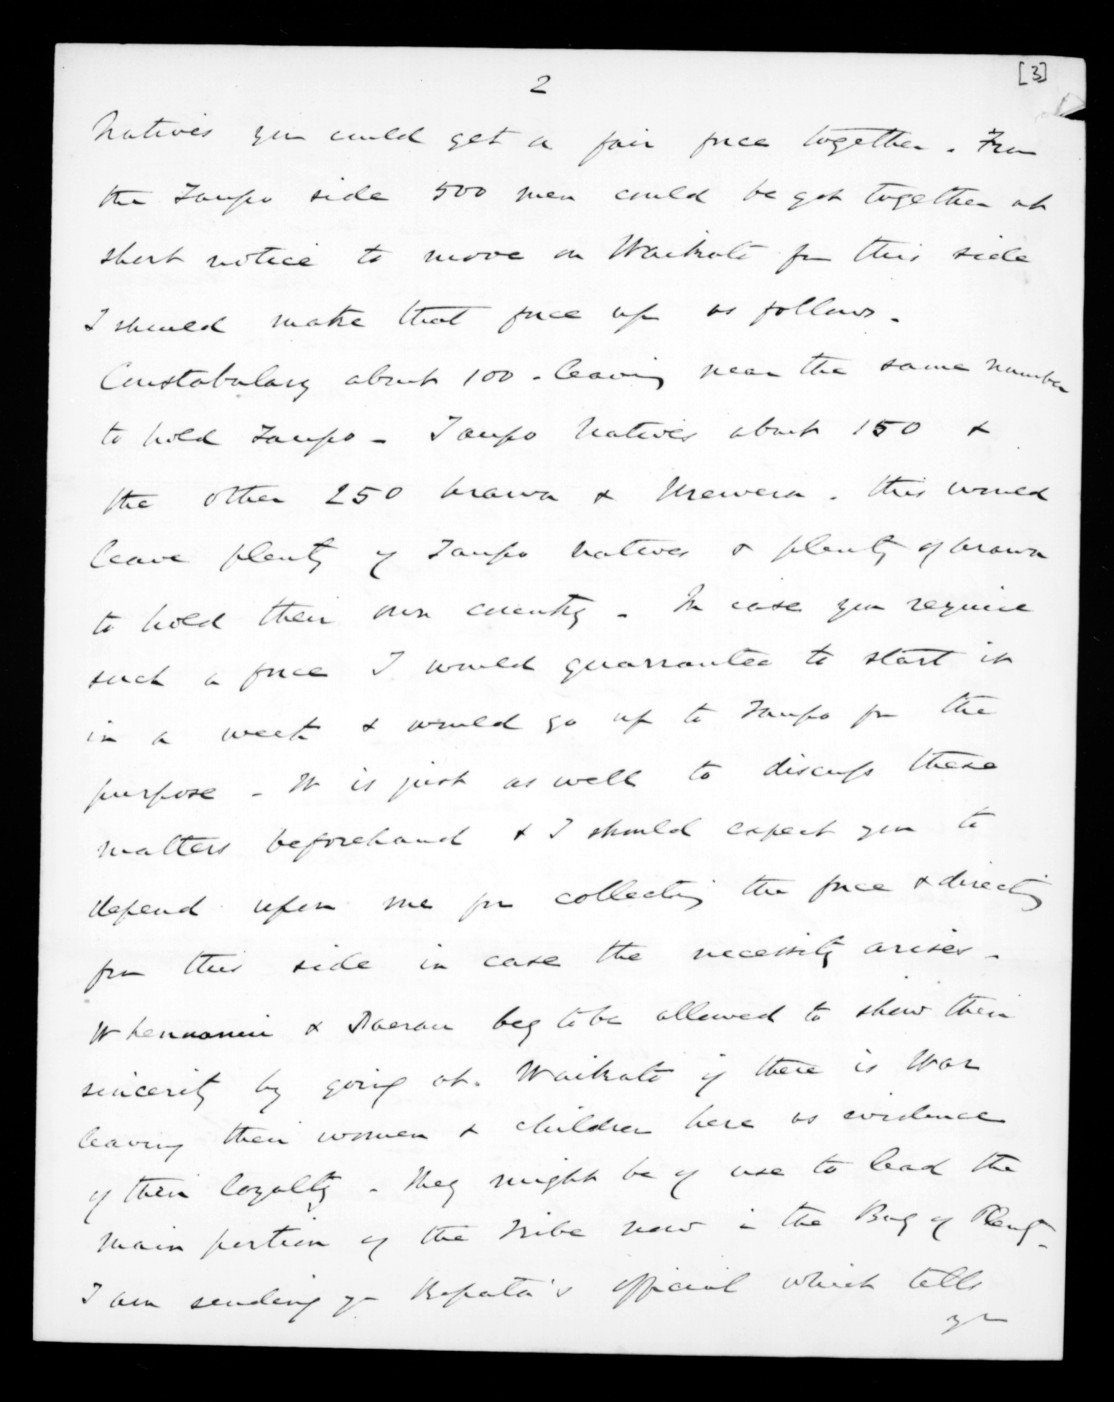 [3]
2
Natives you could get a fair force together. From
the Taupo side 500 men could be got together at
short notice to move on Waikato from this side
I should make that force up as follows.
Constabulary about 100 - leaving near the same number
to hold Taupo - Taupo Natives about 150 &
the other 250 Arawa & Urewera. this would
leave plenty of Taupo natives & plenty of Arawa
to hold their own country - In case you require
such a force I would guarrantee to start it
in a week & would go up to Taupo for the
purpose - It is just as well to discuss these
matters beforehand & I should expect you to
depend upon me for collecting the force & directing
from this side in case the necessity arises -
Whenuanui & Paerau beg to be allowed to show their
sincerity by going at Waikato if there is War
leaving their women & children here as evidence
of their loyalty - They might be of use to lead the
main portion of the tribe now in the Bay of Plenty -
I am sending you Ropata's official which tells
you